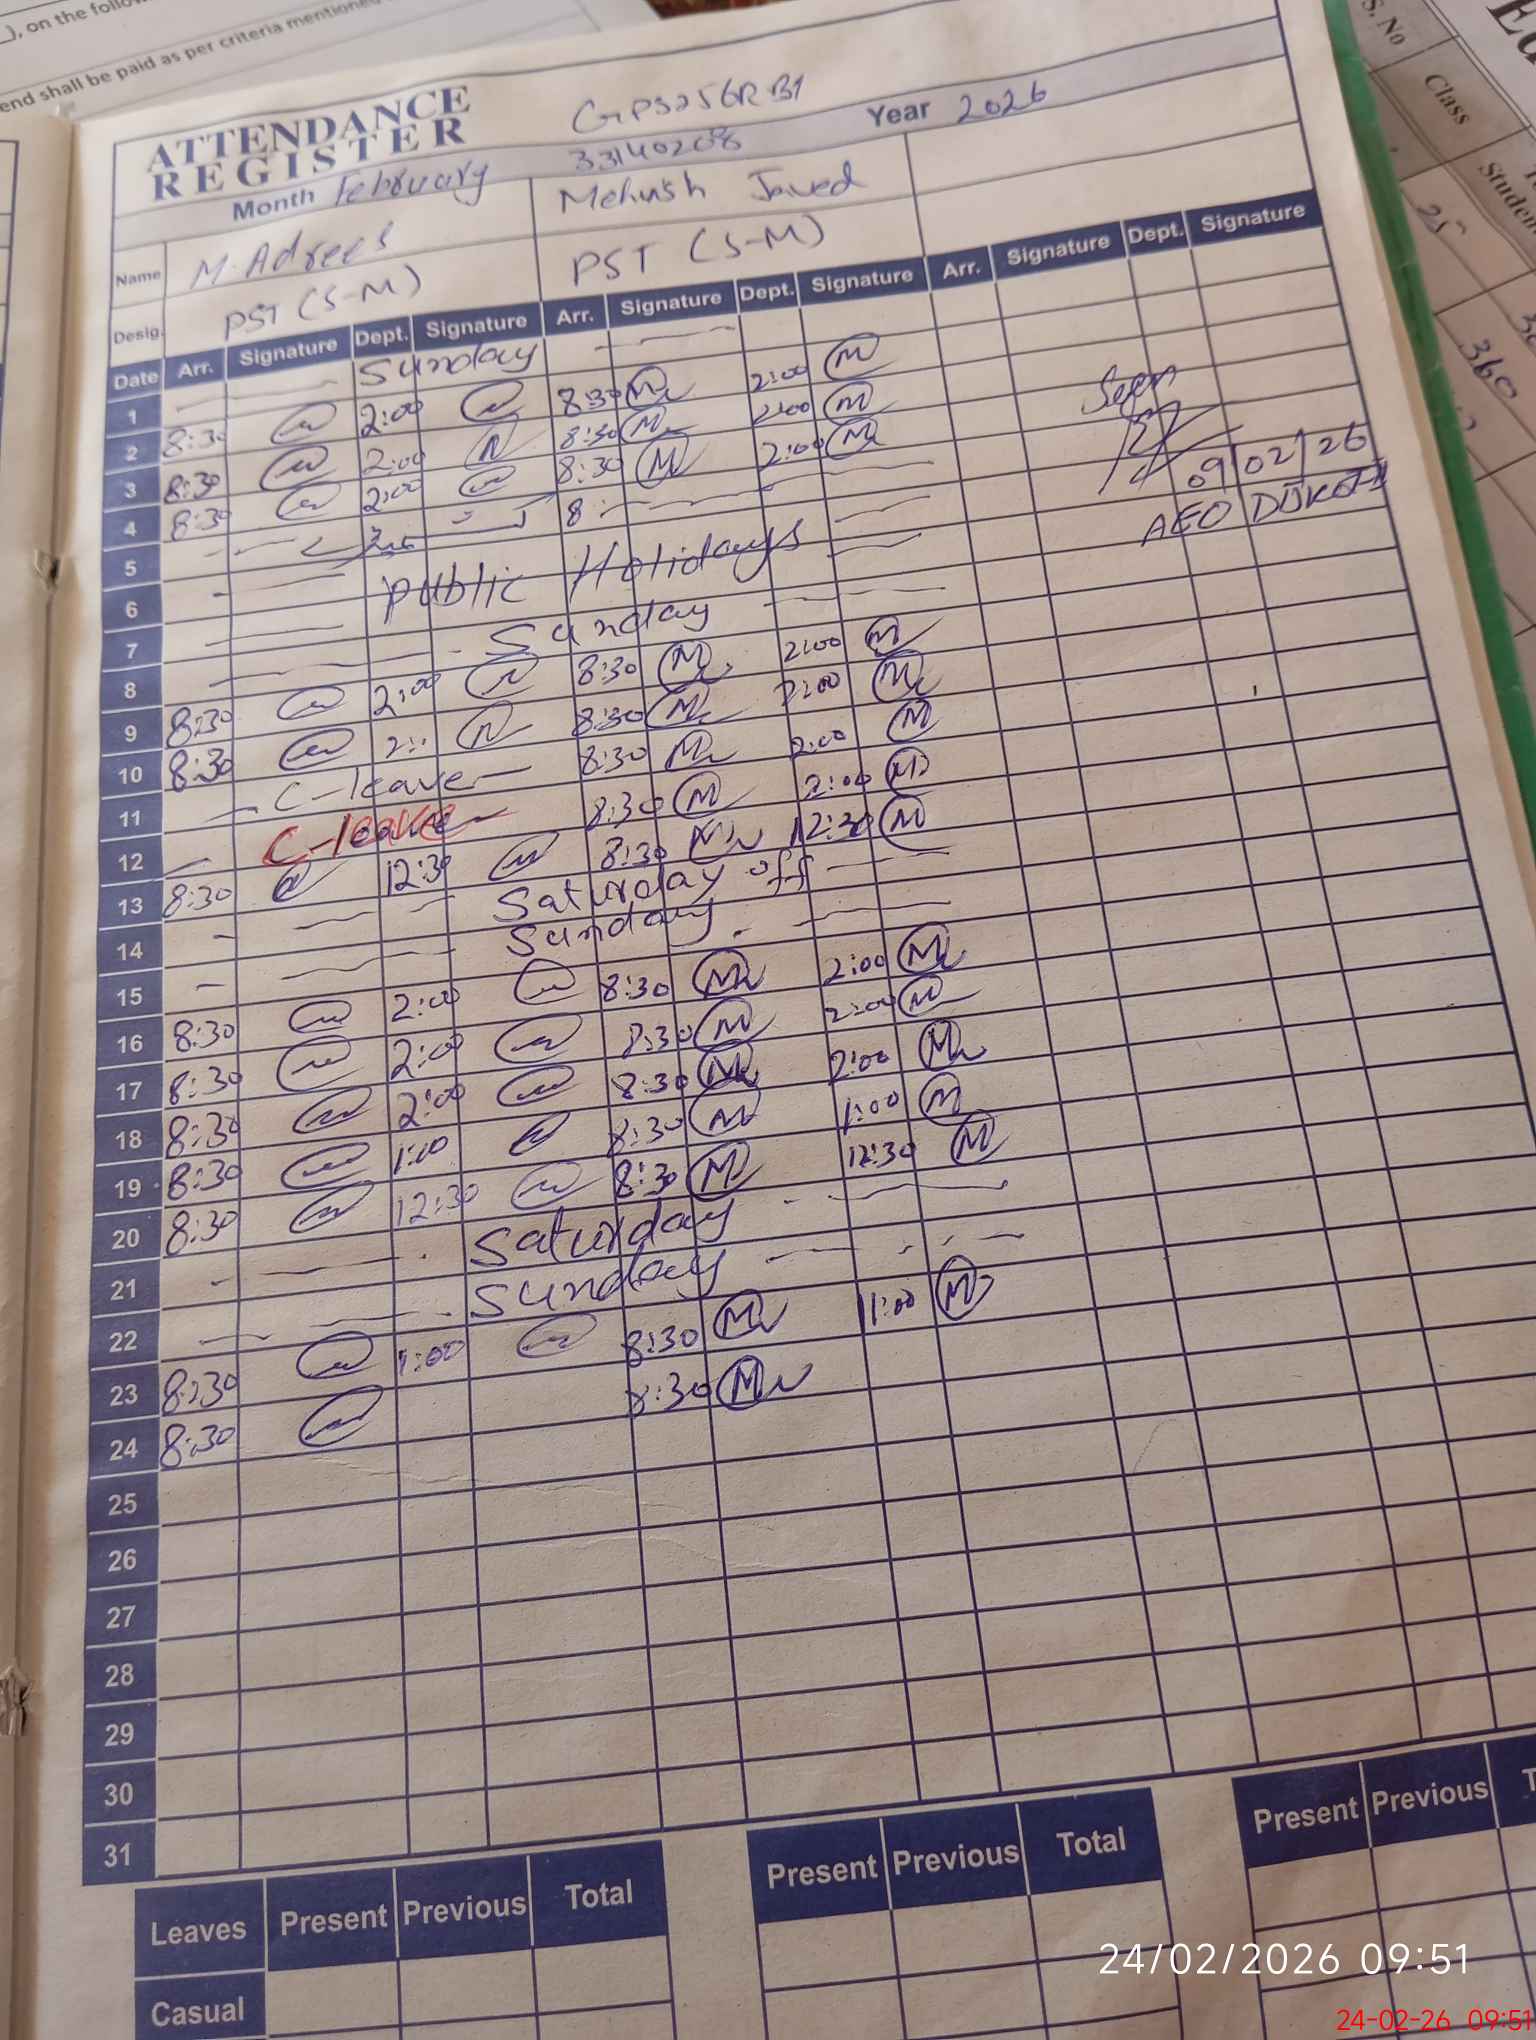 ), on the follow
end shall be paid as per criteria mentioned
S. No
Class
Studen
25
360
ATTENDANCE
REGISTER
GPS256RB1
33140208
Month February
Year 2026
Name M. Adrees
Mehwish Javed
Desig. PST (S-M)
PST (S-M)
Date Arr. Signature Dept. Signature Arr. Signature Dept. Signature Arr. Signature Dept. Signature
1 Sunday
2 8:30 2:00 8:30 M 2:00 M
3 8:30 2:00 8:30 M 2:00 M
4 8:30 2:00 8:30 M 2:00 M
Seen
09/02/26
AEO DIJKOT-1
5 8:
6 Public Holidays
7
8 Sunday
9 8:30 2:00 8:30 M 2:00 M
10 8:30 2:. 8:30 M 2:00 M
11 C-leave 8:30 M 2:00 M
12 C-leave 8:30 M 2:00 M
13 8:30 12:30 8:30 M 12:30 M
14 Saturday off
15 Sunday
16 8:30 2:00 8:30 M 2:00 M
17 8:30 2:00 8:30 M 2:00 M
18 8:30 2:00 8:30 M 2:00 M
19 8:30 1:00 8:30 M 1:00 M
20 8:30 12:30 8:30 M 12:30 M
21 Saturday
22 Sunday
23 8:30 1:00 8:30 M 1:00 M
24 8:30 8:30 M
25
26
27
28
29
30
31
Leaves Present Previous Total Present Previous Total Present Previous T
Casual
24/02/2026 09:51
24-02-26 09:51